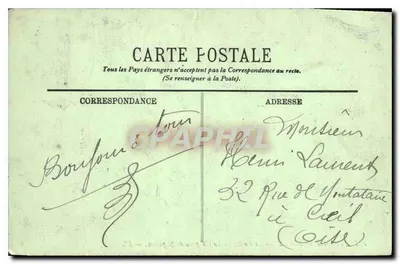 CARTE POSTALE
Tous les Pays étrangers n'acceptent pas la Correspondance au recto.
(Se renseigner à la Poste).
CORRESPONDANCE
ADRESSE
Bonjour à tous
CARTE POSTALE
Monsieur
Henri Laurent
32 Rue de Montataire
à Creil
(Oise)